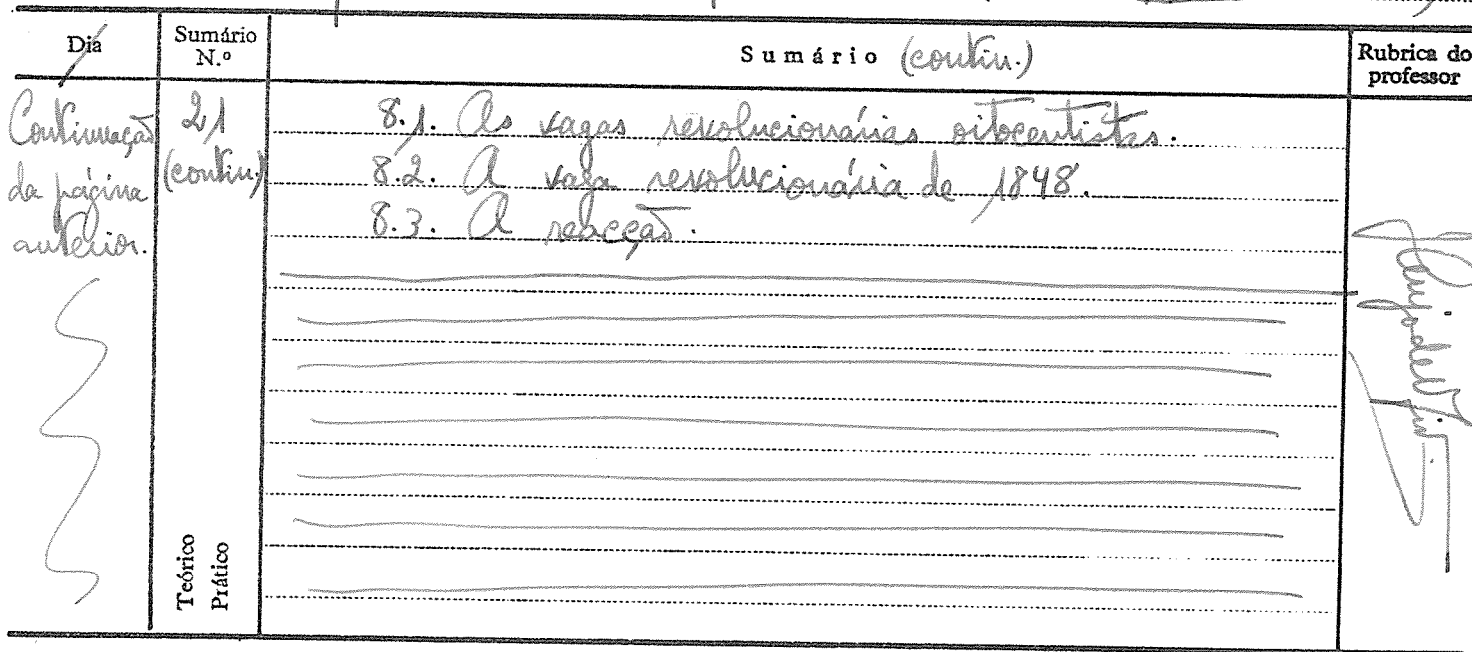 Dia
Sumário N.º
Sumário (contin.)
Rubrica do professor
Continuação da página anterior.
21 (contin.)
8.1. As vagas revolucionárias oitocentistas.
8.2. A vaga revolucionária de 1848.
8.3. A reacção.
Teórico
Prático